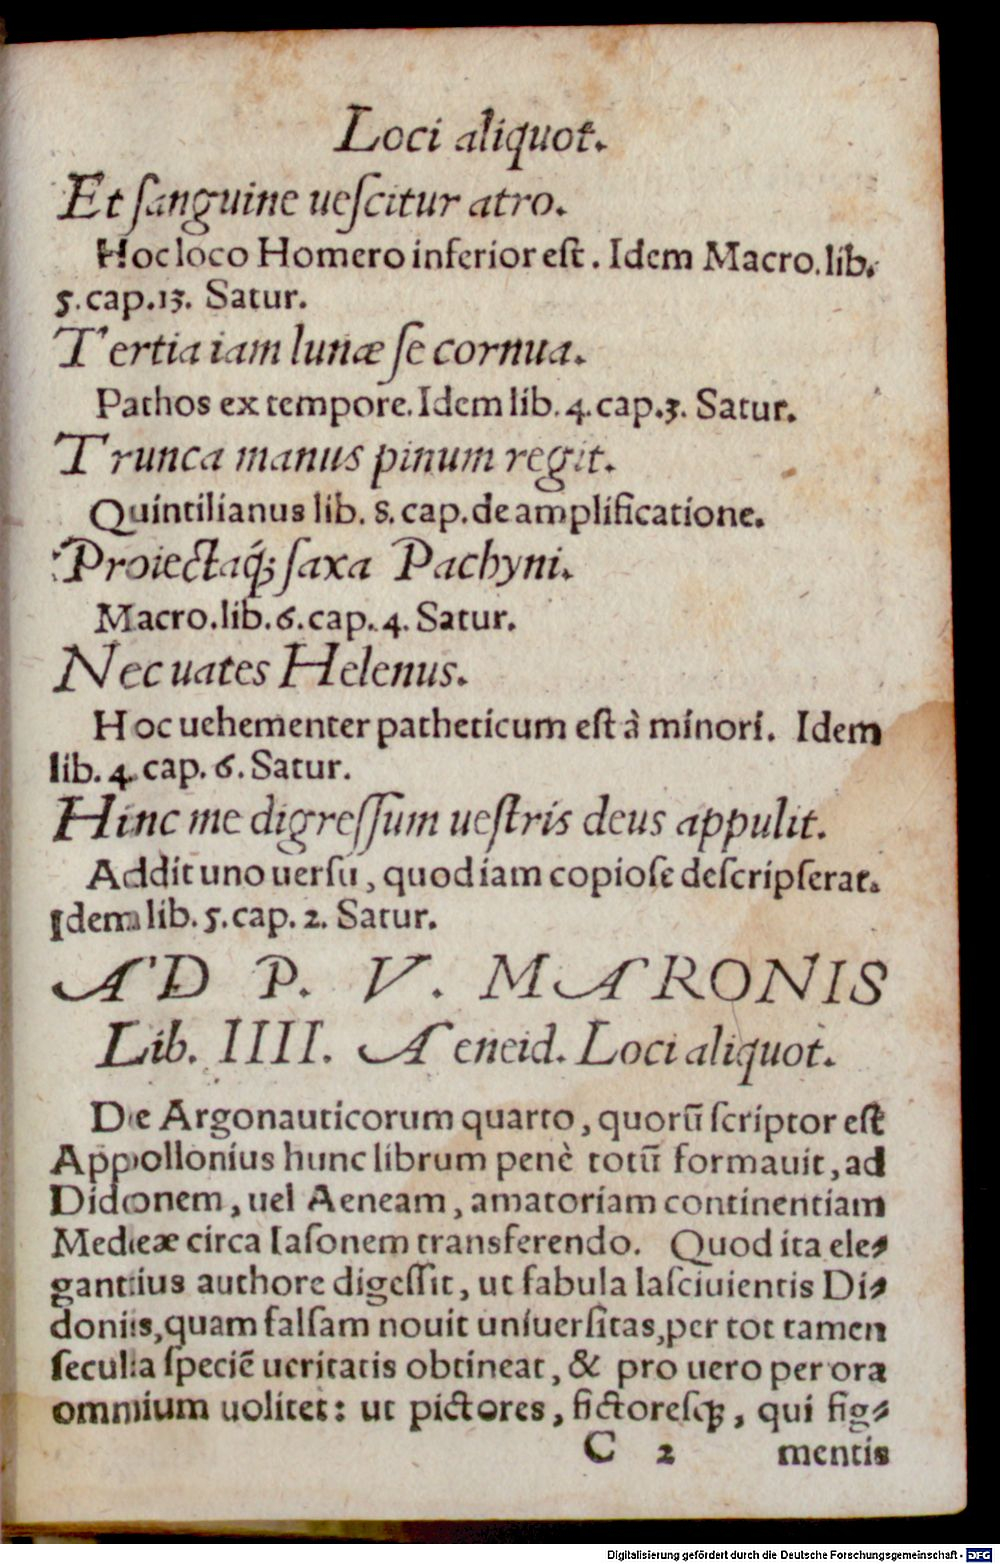 Loci aliquot.
Et ſanguine ueſcitur atro.
Hoc loco Homero inferior eſt. Idem Macro. lib.
5. cap. 13. Satur.
Tertia iam lunæ ſe cornua.
Pathos ex tempore. Idem lib. 4. cap. 3. Satur.
Trunca manus pinum regit.
Quintilianus lib. 8. cap. de amplificatione.
Proiectaq́; ſaxa Pachyni.
Macro. lib. 6. cap. 4. Satur.
Nec uates Helenus.
Hoc uehementer patheticum eſt à minori. Idem
lib. 4. cap. 6. Satur.
Hinc me digreſſum ueſtris deus appulit.
Addit uno uerſu, quod iam copioſe deſcripſerat.
Idem lib. 5. cap. 2. Satur.
AD P. V. MARONIS
Lib. IIII. Aeneid. Loci aliquot.
De Argonauticorum quarto, quorū ſcriptor eſt
Appollonius hunc librum penè totū formauit, ad
Didonem, uel Aeneam, amatoriam continentiam
Medeæ circa Iaſonem transferendo. Quod ita ele⸗
gantius authore digeſſit, ut fabula laſciuientis Di⸗
donis, quam falſam nouit uniuerſitas, per tot tamen
ſecula ſpeciē ueritatis obtineat, & pro uero per ora
omnium uolitet: ut pictores, fictoreſq;, qui fig⸗
C 2 mentis
Digitalisierung gefördert durch die Deutsche Forschungsgemeinschaft - DFG